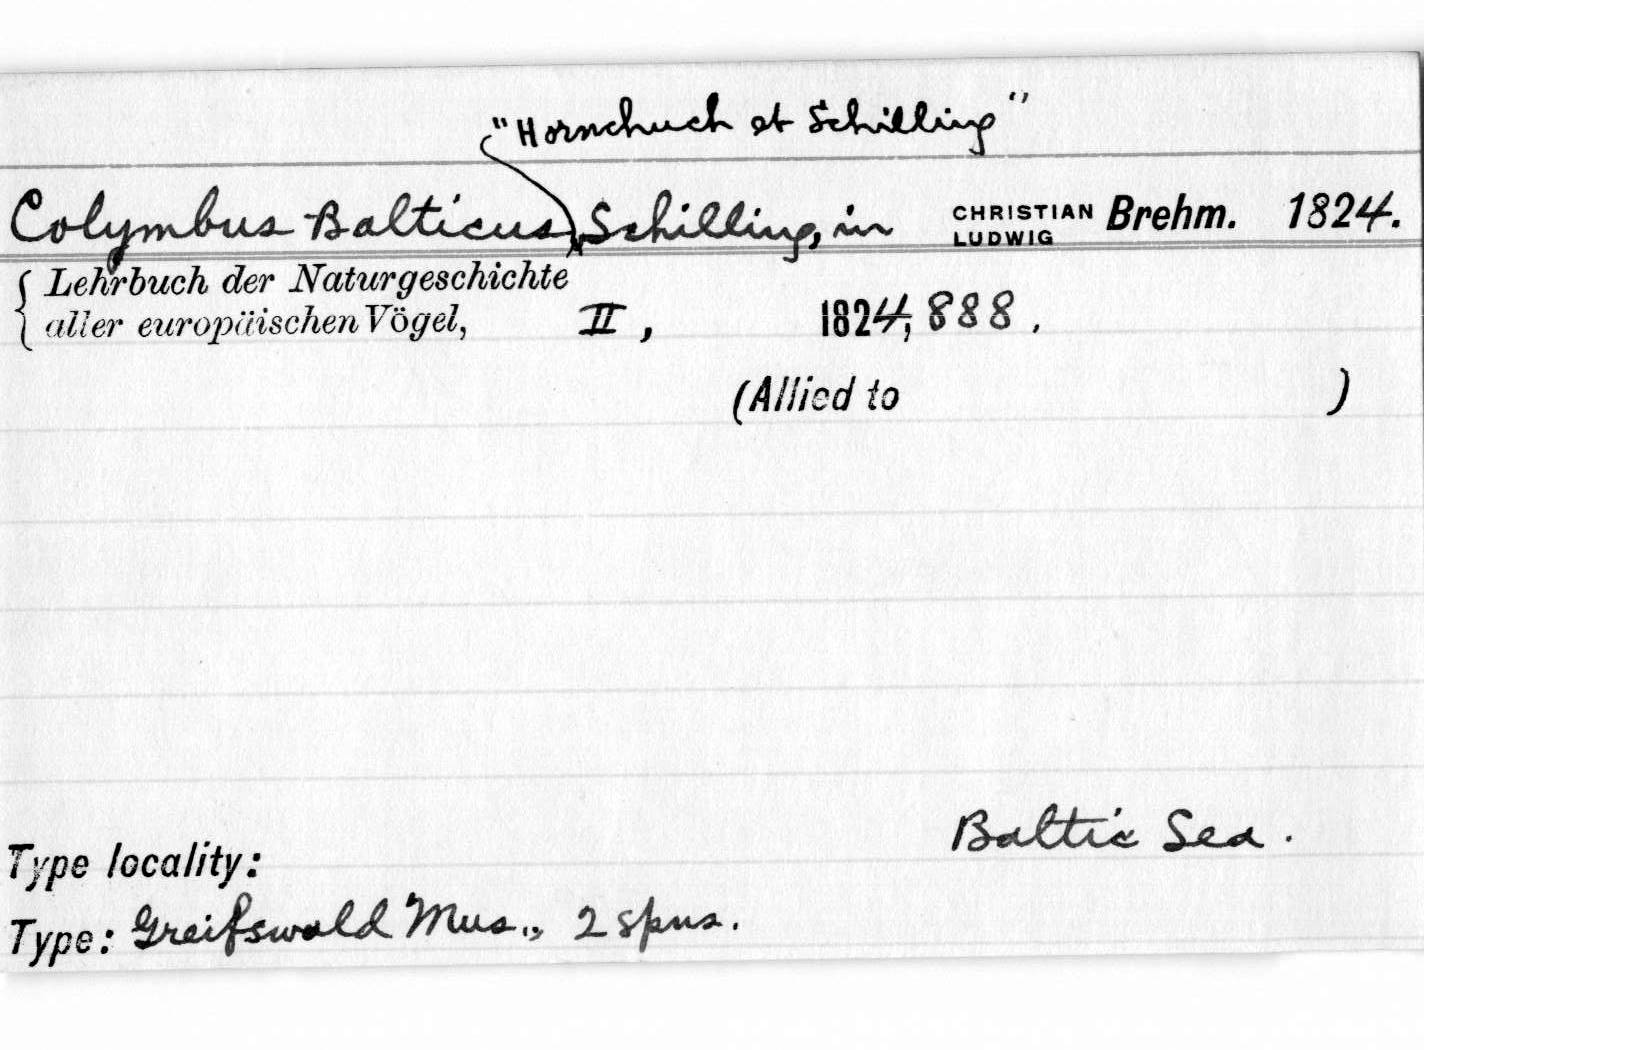 "Hornchuch et Schilling"
Colymbus Balticus, Schilling, in CHRISTIAN LUDWIG Brehm. 1824.
Lehrbuch der Naturgeschichte
aller europäischen Vögel, II, 1824, 888.
(Allied to )
Baltic Sea.
Type locality:
Type: Greifswald Mus., 2 spns.